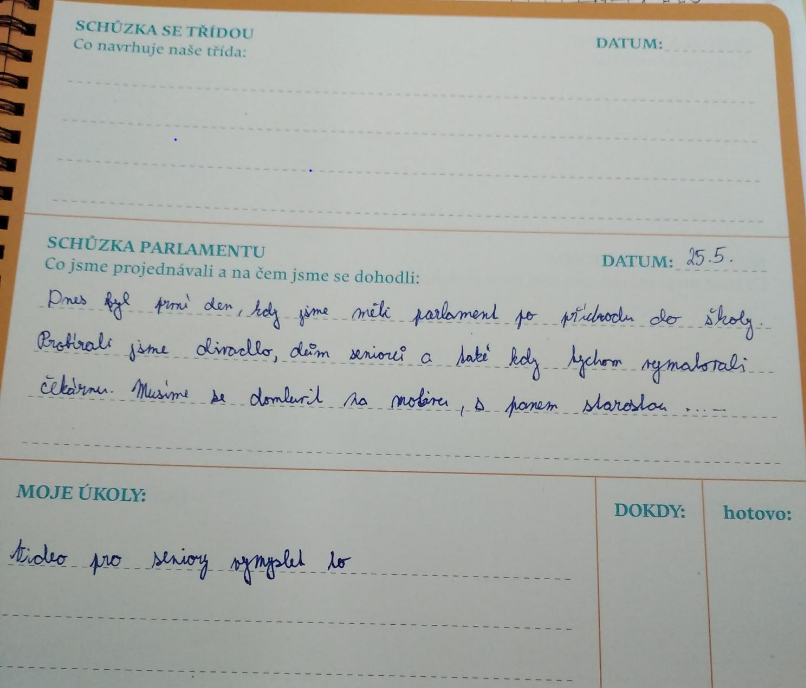 SCHŮZKA SE TŘÍDOU
DATUM:
Co navrhuje naše třída:
SCHŮZKA PARLAMENTU
DATUM: 25.5.
Co jsme projednávali a na čem jsme se dohodli:
Dnes byl první den, kdy jsme měli parlament po příchodu do školy.
Probírali jsme divadlo, dům seniorů a také kdy bychom vymalovali
čekárnu. Musíme se domluvit na motivu, s panem starostou ....
MOJE ÚKOLY:
DOKDY:
hotovo:
video pro seniory vymyslet to